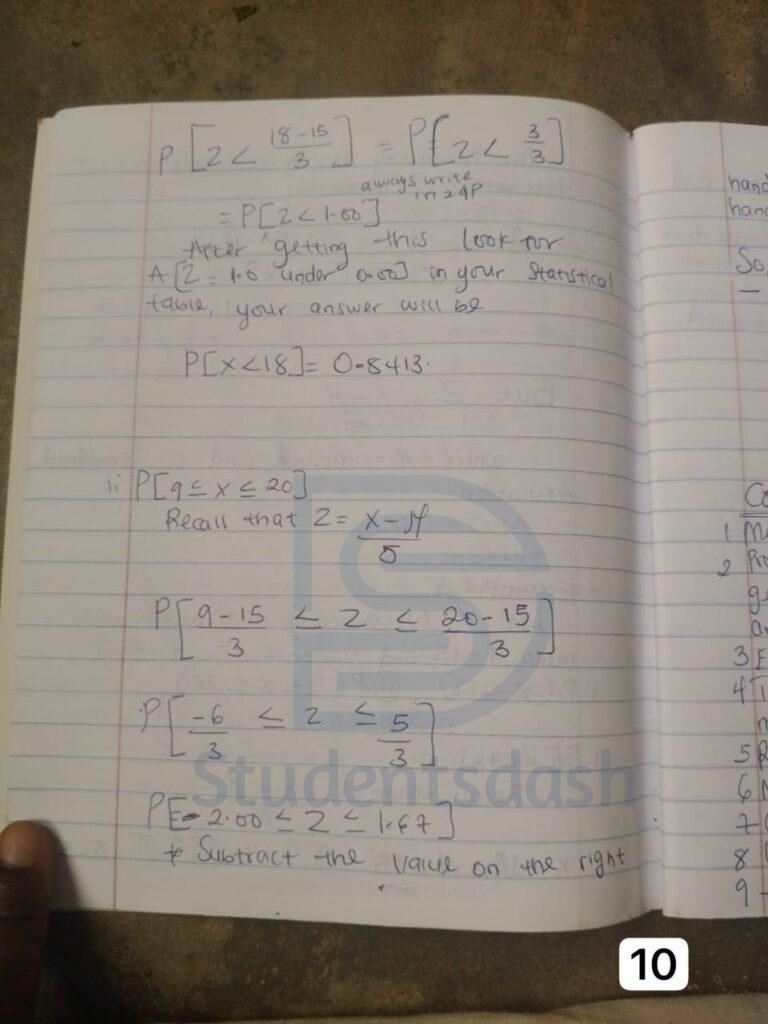 P [Z < 18-15/3] = P[Z < 3/3]
always write
in 2dp
= P[Z < 1.00]
After getting this look for
A [Z = 1.0 under 0.00] in your Statistical
table, your answer will be
P[X<18] = 0.8413.
ii P[9 ≤ x ≤ 20]
Recall that Z = x-μ/σ
P[9-15/3 ≤ Z ≤ 20-15/3]
P[-6/3 ≤ Z ≤ 5/3]
Studentsdash
P[-2.00 ≤ Z ≤ 1.67]
* Subtract the value on the right
hand
hand
So,
1
2
3 E
4
5
6
7
8
9
10